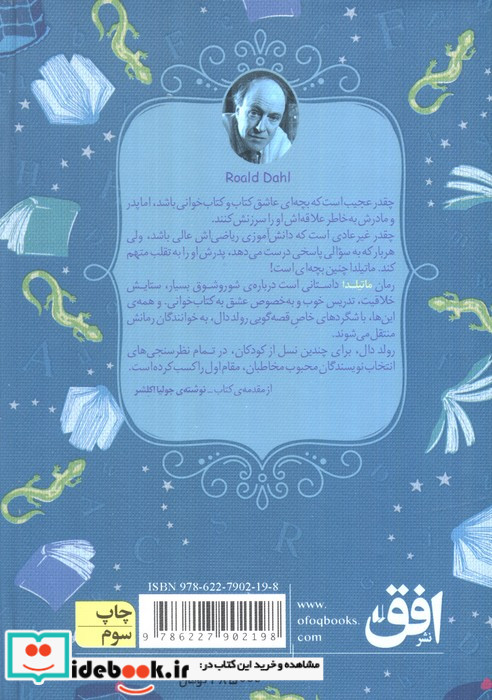 Roald Dahl
چقدر عجیب است که بچه‌ای عاشق کتاب و کتاب‌خوانی باشد، اما پدر
و مادرش به خاطر علاقه‌اش او را سرزنش کنند.
چقدر غیرعادی است که دانش‌آموزی ریاضی‌اش عالی باشد، ولی
هر بار که به سؤالی پاسخی درست می‌دهد، پدرش او را به تقلب متهم
کند. ماتیلدا چنین بچه‌ای است!
رمان ماتیلدا داستانی است درباره‌ی شوروشوق بسیار، ستایش
خلاقیت، تدریس خوب و به‌خصوص عشق به کتاب‌خوانی. و همه‌ی
این‌ها، با شگردهای خاصِ قصه‌گویی رولد دال، به خوانندگان رمانش
منتقل می‌شوند.
رولد دال، برای چندین نسل از کودکان، در تمام نظرسنجی‌های
انتخاب نویسندگان محبوب مخاطبان، مقام اول را کسب کرده است.
از مقدمه‌ی کتاب _ نوشته‌ی جولیا اکلشر
ISBN 978-622-7902-19-8
9 786227 902198
چاپ
سوم
www.
ofoqbooks.
com
افق
نشر
idebook.ir
مشاهده و خرید این کتاب در:
تومان